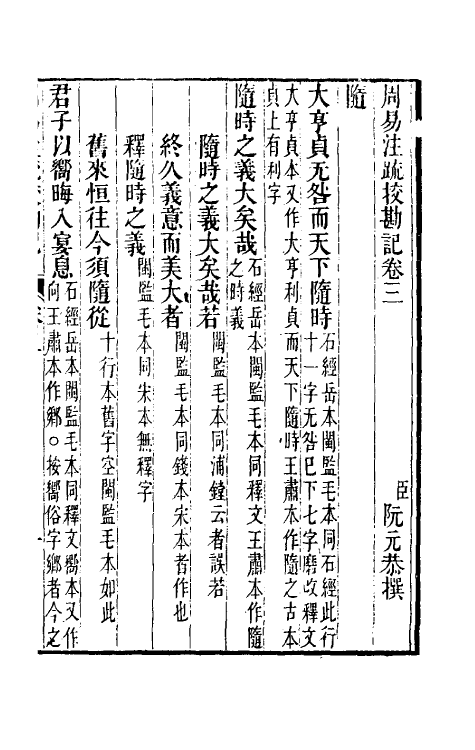 周易注疏挍勘記卷三
臣阮元恭撰
隨
大亨貞无咎而天下隨時石經岳本閩監毛本同石經此行
十一字无咎已下七字磨改釋文
大亨貞本又作大亨利貞而天下隨時王肅本作隨之古本
貞上有利字
隨時之義大矣哉石經岳本閩監毛本同釋文王肅本作隨
之時義
隨時之義大矣哉若閩監毛本同浦鏜云者誤若
終久義意而美大者閩監毛本同錢本宋本者作也
釋隨時之義閩監毛本同宋本無釋字
舊來恒往今須隨從十行本舊字空閩監毛本如此
君子以嚮晦入宴息石經岳本閩監毛本同釋文嚮本又作
向王肅本作鄉○按嚮俗字鄉者今之